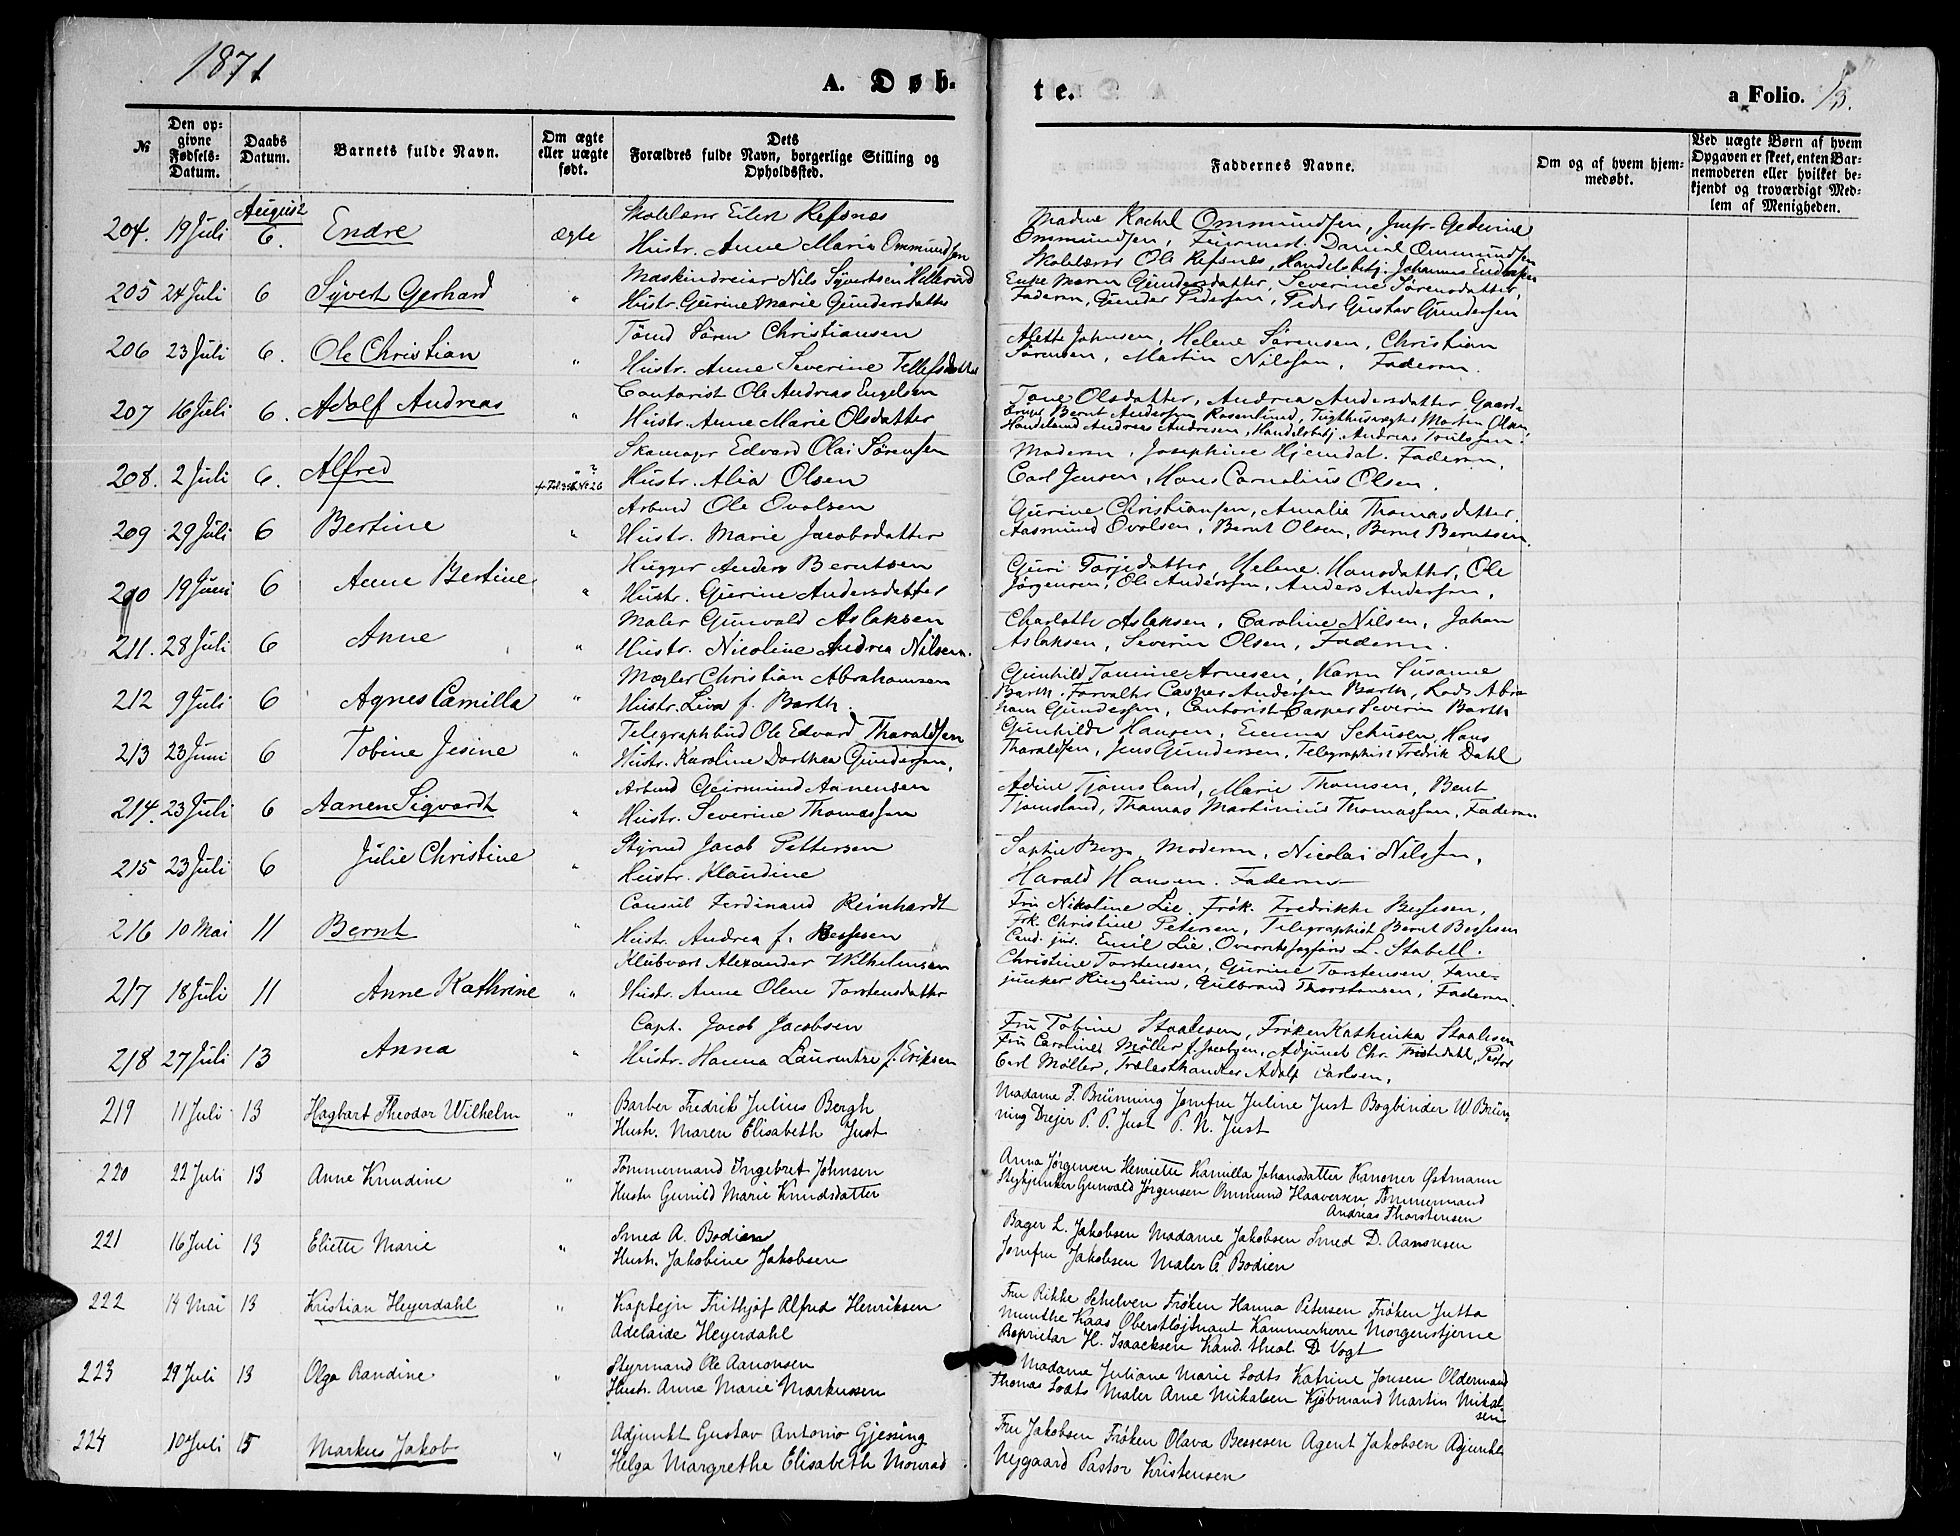 1871
A. Døb-
te.
a Folio. 13.
№
Den op-
givne
Fødsels-
Datum.
Daabs
Datum.
Barnets fulde Navn.
Om ægte
eller uægte
født.
Dets
Forældres fulde Navn, borgerlige Stilling og
Opholdssted.
Faddernes Navne.
Om og af hvem hjem-
medøbt.
Ved uægte Børn af hvem
Opgaven er skeet, enten Bar-
nemoderen eller hvilket be-
kjendt og troværdigt Med-
lem af Menigheden.
August
204. 19 Juli 6. Endre ægte
Skolelærer Eilert Refsnes
Hustr. Anne Marie Ommundsen
Madme Rachel Ommundsen, Jmfr. Gedevine
Ommundsen, Daniel Ommundsen
Skolelærer Ole Refsnes, Handelsbetj. Johannes
205 24 Juli 6 Syvert Gerhard "
Maskindreier Nils Syvertsen
Hustr. Gurine Marie Gundersdatter
Enke Maren Gundersdatter, Severine Sørensdatter,
Faderen, Gunder Pedersen, Peder Gustav Gundersen
206 23 Juli 6. Ole Christian "
Tømd Søren Christiansen
Hustr. Anne Severine Tellefsdatter
Alette Johnsen, Helene Sørensen, Christian
Sørensen, Martin Nilssen, Faderen.
207 16 Juli 6. Adolf Andreas "
Contorist Ole Andreas Engelsen
Hustr. Anne Marie Olsdatter
Tone Olsdatter, Andrea Andersdatter, Gaard-
bruger Bernt Andersen Rosenlund, Tugthusvægter Morten Olsen,
Handelsmd Andreas Andresen, Handelsbetj Andreas
208. 2 Juli 6. Alfred
Skomager Edvard Olai Sørensen
Hustr. Alia Olsen
Moderen, Josephine Hjemdal. Faderen,
Carl Jensen, Hans Cornelius Olsen.
209 29 Juli 6 Bertine "
Arbmd Ole Ovolsen
Hustr. Marie Jacobsdatter
Gurine Christiansen, Amalia Thomasdatter
Aasmund Ovolsen, Bernt Olsen, Bernt Berntsen.
210 19 Juni 6 Anne Bertine "
Hugger Anders Berntsen
Hustr. Gurine Andersdatter
Guri Tarjedatter, Helene Hansdatter, Ole
Jørgensen, Ole Anderssen, Anders Andersen,
211. 28 Juli 6 Anne "
Maler Gunvald Aslaksen
Hustr. Nicoline Andrea Nilsen.
Charlotte Aslaksen, Caroline Nilsen, Johan
Aslaksen, Severin Olsen, Faderen.
212 9 Juli 6 Agnes Camilla "
Mægler Christian Abrahamsen
Hustr. Liva f. Barth.
Gunhild Tomine Arnesen, Karen Susanne
Barth. Forvalter Casper Andersen Barth, Lods Abra
ham Gundersen, Contorist Casper Severin Barth
213 23 Juni 6 Tobine Jesine "
Telegraphbud Ole Edvard Tharaldsen
Hustr. Karoline Dorthea Gundersen,
Gunhilde Hansen, Emma Schusen, Hans
Tharaldsen, Jens Gundersen, Telegraphist Fredrik Dahl
214. 23 Juli 6 Aanen Sigvardt "
Arbmd Geirmund Aanensen
Hustr. Severine Thomassen
Adine Tjomsland, Marie Thomsen, Bent
Tjomsland, Thomas Martinius Thomassen, Faderen.
215 23 Juli 6 Julie Christine "
Styrmd Jacob Pettersen
Hustr. Klaudine
Sophie Berge Moderen, Nicolai Nilssen,
Harald Hansen. Faderen
216 10 Mai 11 Bernt "
Consul Ferdinand Reinhardt
Hustr. Andrea f. Bessesen
Fru Nikoline Lie. Frøk. Fredrikke Bessesen,
Frk. Christine Petersen, Telegraphist Bernt Bessesen
Cand. jur. Emil Lie, Overretssagfører L. Stabell.
217 18 Juli 11 Anne Kathrine "
Klubvært Alexander Wilhelmsen
Hustr. Anne Olene Torstensdatter
Christine Torstensen, Gurine Torstensen, Fane-
junker Ringheim, Gulbrand Thorstensen, Faderen.
218 27 Juli 13 Anna "
Capt. Jacob Jacobsen
Hustr. Hanna Laurentze f. Eriksen
Fru Tobine Staalesen, Frøken Kathinka Staalesen
Fru Caroline Møller f. Jacobsen, Adjunct Chr. Fristedahl, Pastor
Carl Møller, Trælasthandler Adolf Carlsen,
219 11 Juli 13 Hagbart Theodor Wilhelm "
Barber Fredrik Julius Bergh
Hustr. Maren Elisabeth Just
Madame F. Brünning Jomfru Juline Just Bogbinder W. Brün
ning Drejer P. P. Just P. N. Just
220 22 Juli 13 Anne Knudine "
Tømmermand Ingebret Johnsen
Hustr Gunild Marie Knudsdatter
Anna Jørgensen Henriette Kamilla Johansdatter Kanoner Østmann
Stykjunker Gunvald Jørgensen Ommund Haaversen Tømmermand
Andreas Thorstensen
221 16 Juli 13 Eliette Marie "
Smed A. Bodien
Hustr. Jakobine Jakobsen
Bager L. Jakobsen Madame Jakobsen Smed D. Aanonsen
Jomfru Jakobsen Maler C. Bodien
222 14 Mai 13 Kristian Heyerdahl "
Kaptejn Frithjof Alfred Henriksen
Adelaide Heyerdahl
Fru Rikke Schelven Frøken Hanna Petersen Frøken Jutta
Munthe Kaas Oberstløjtnant Kammerherre Morgenstjerne
Proprietær H. Isaachsen Kand. theol D. Vogt
223 29 Juli 13 Olga Randine "
Styrmand Ole Aanonsen
Hustr. Anne Marie Markussen
Madame Juliane Marie Lodts Katrine Jensen Oldermand
Thomas Lodts Maler Arne Mikalsen Kjøbmand Martin Mikal
sen
224 10 Juli 15 Markus Jakob "
Adjunkt Gustav Antonio Gjessing
Helga Margrethe Elisabeth Monrad
Fru Jakobsen Frøken Olava Bessesen Agent Jakobsen Adjunkt
Nygaard Pastor Kristensen